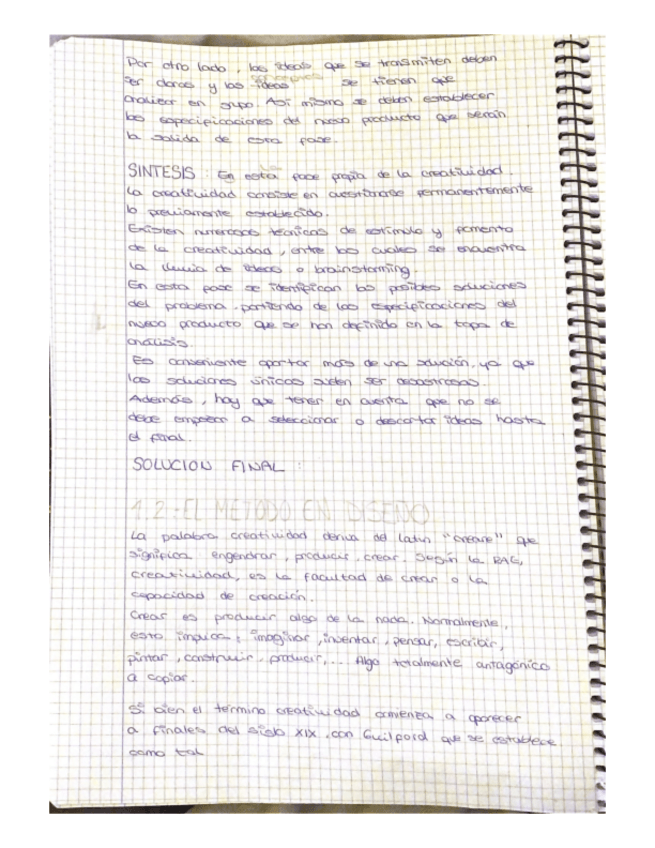 Por otro lado, las ideas que se transmiten deben
ser claras y las ideas se tienen que
analizar en grupo. Así mismo se deben establecer
las especificaciones del nuevo producto que serán
la salida de esta fase.
SINTESIS: En esta fase propia de la creatividad.
La creatividad consiste en cuestionarse permanentemente
lo previamente establecido.
Existen numerosas técnicas de estímulo y fomento
de la creatividad, entre las cuales se encuentra
la lluvia de ideas o brainstorming.
En esta fase se identifican las posibles soluciones
del problema partiendo de las especificaciones del
nuevo producto que se han definido en la etapa de
análisis.
Es conveniente aportar más de una solución, ya que
las soluciones únicas suelen ser desastrosas.
Además, hay que tener en cuenta que no se
debe empezar a seleccionar o descartar ideas hasta
el final.
SOLUCION FINAL :
1.2-EL METODO EN DISEÑO
La palabra creatividad deriva del latín "creare" que
significa engendrar, producir, crear. Según la RAE,
creatividad, es la facultad de crear o la
capacidad de creación.
Crear es producir algo de la nada. Normalmente,
esto implica: imaginar, inventar, pensar, escribir,
pintar, construir, producir,... Algo totalmente antagónico
a copiar.
Si bien el término creatividad comienza a aparecer
a finales del siglo XIX, con Guilford que se establece
como tal